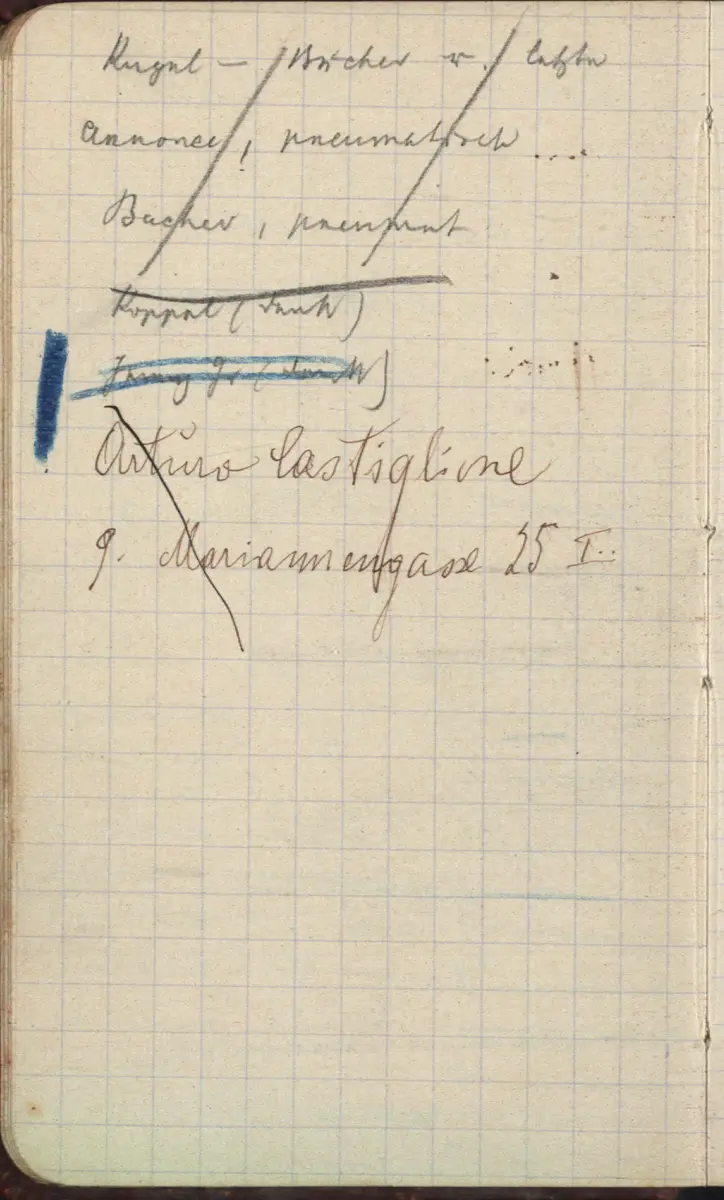 Kugel – Bücher u. letzte
Annonce, pneumatisch ....
Bücher, pneumat
Koppel (Dank)
(Dank)
Arturo Castiglione
9. Mariannengasse 25 I..